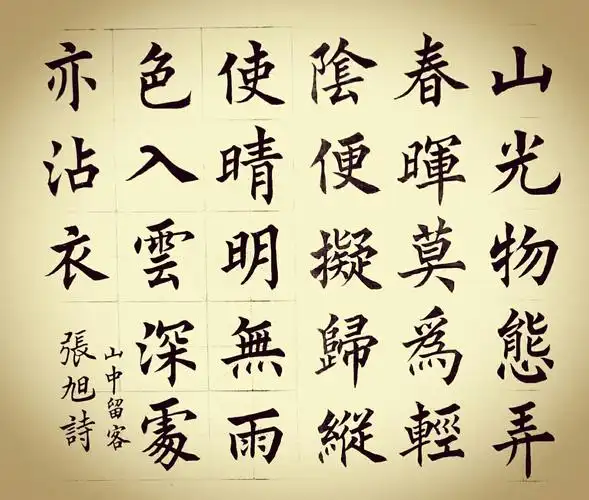 山光物態弄
春暉莫為輕
陰便擬歸縱
使晴明無雨
色入雲深處
亦沾衣
山中留客
張旭詩